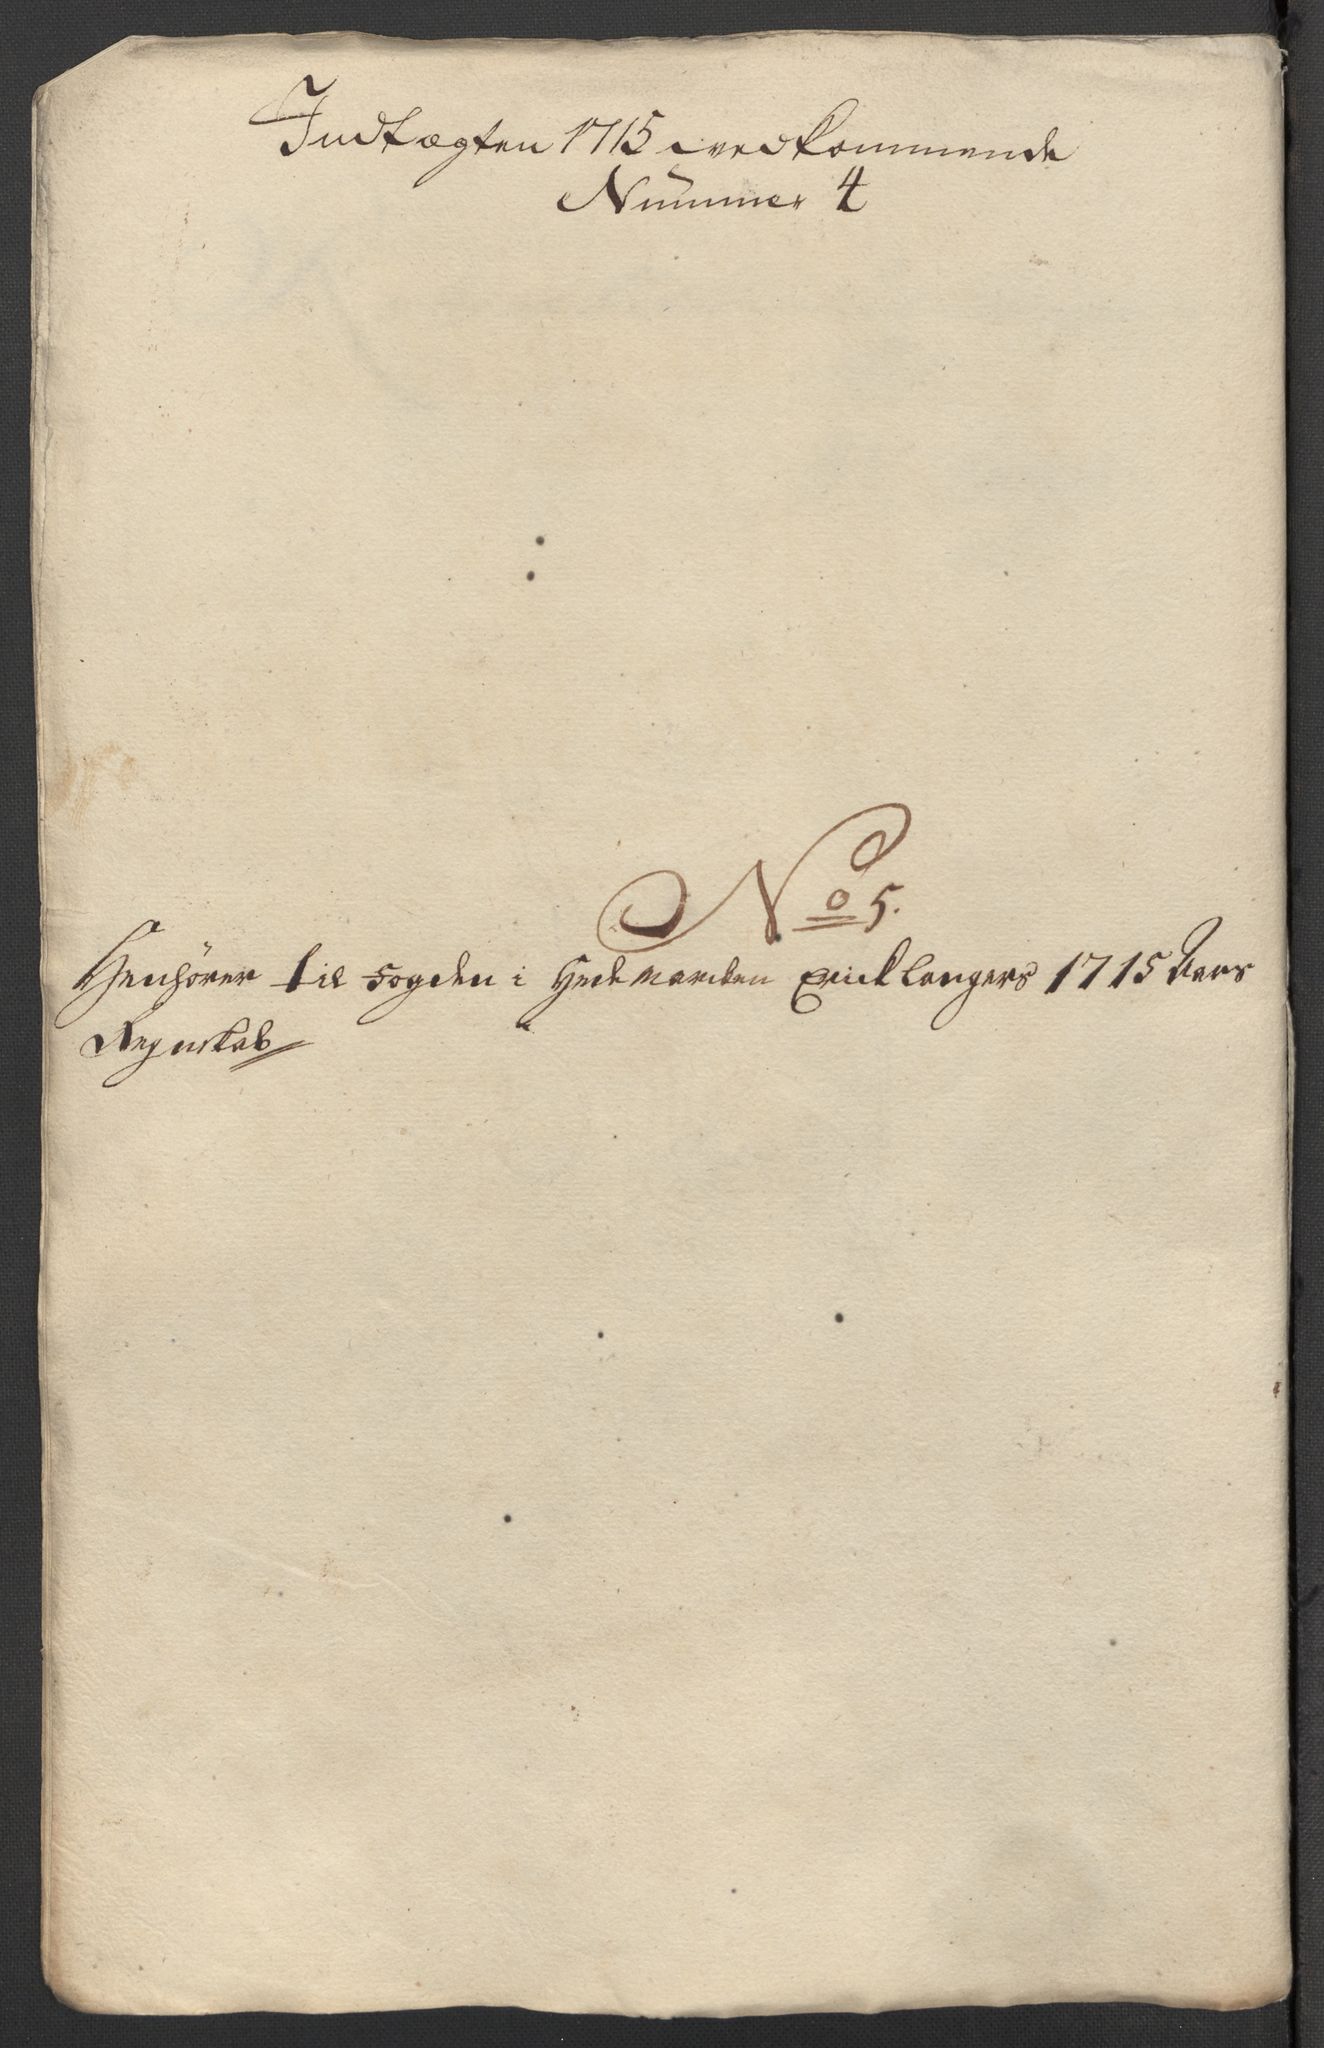 Indtægten 1715 vedkommende
Nummer 4
No 5.
Henhörer til Fogden i Hedemarcken Erick Langers 1715 Aars
Regnskab